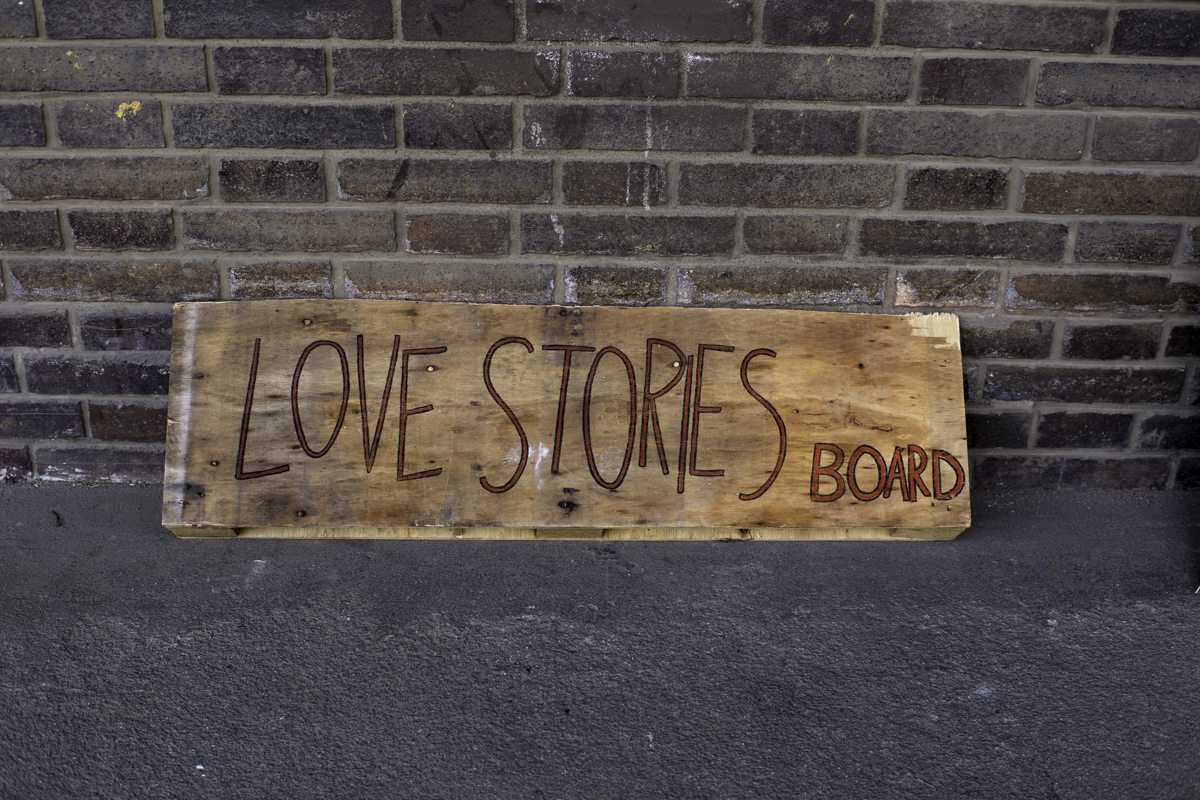 LOVE STORIES BOARD